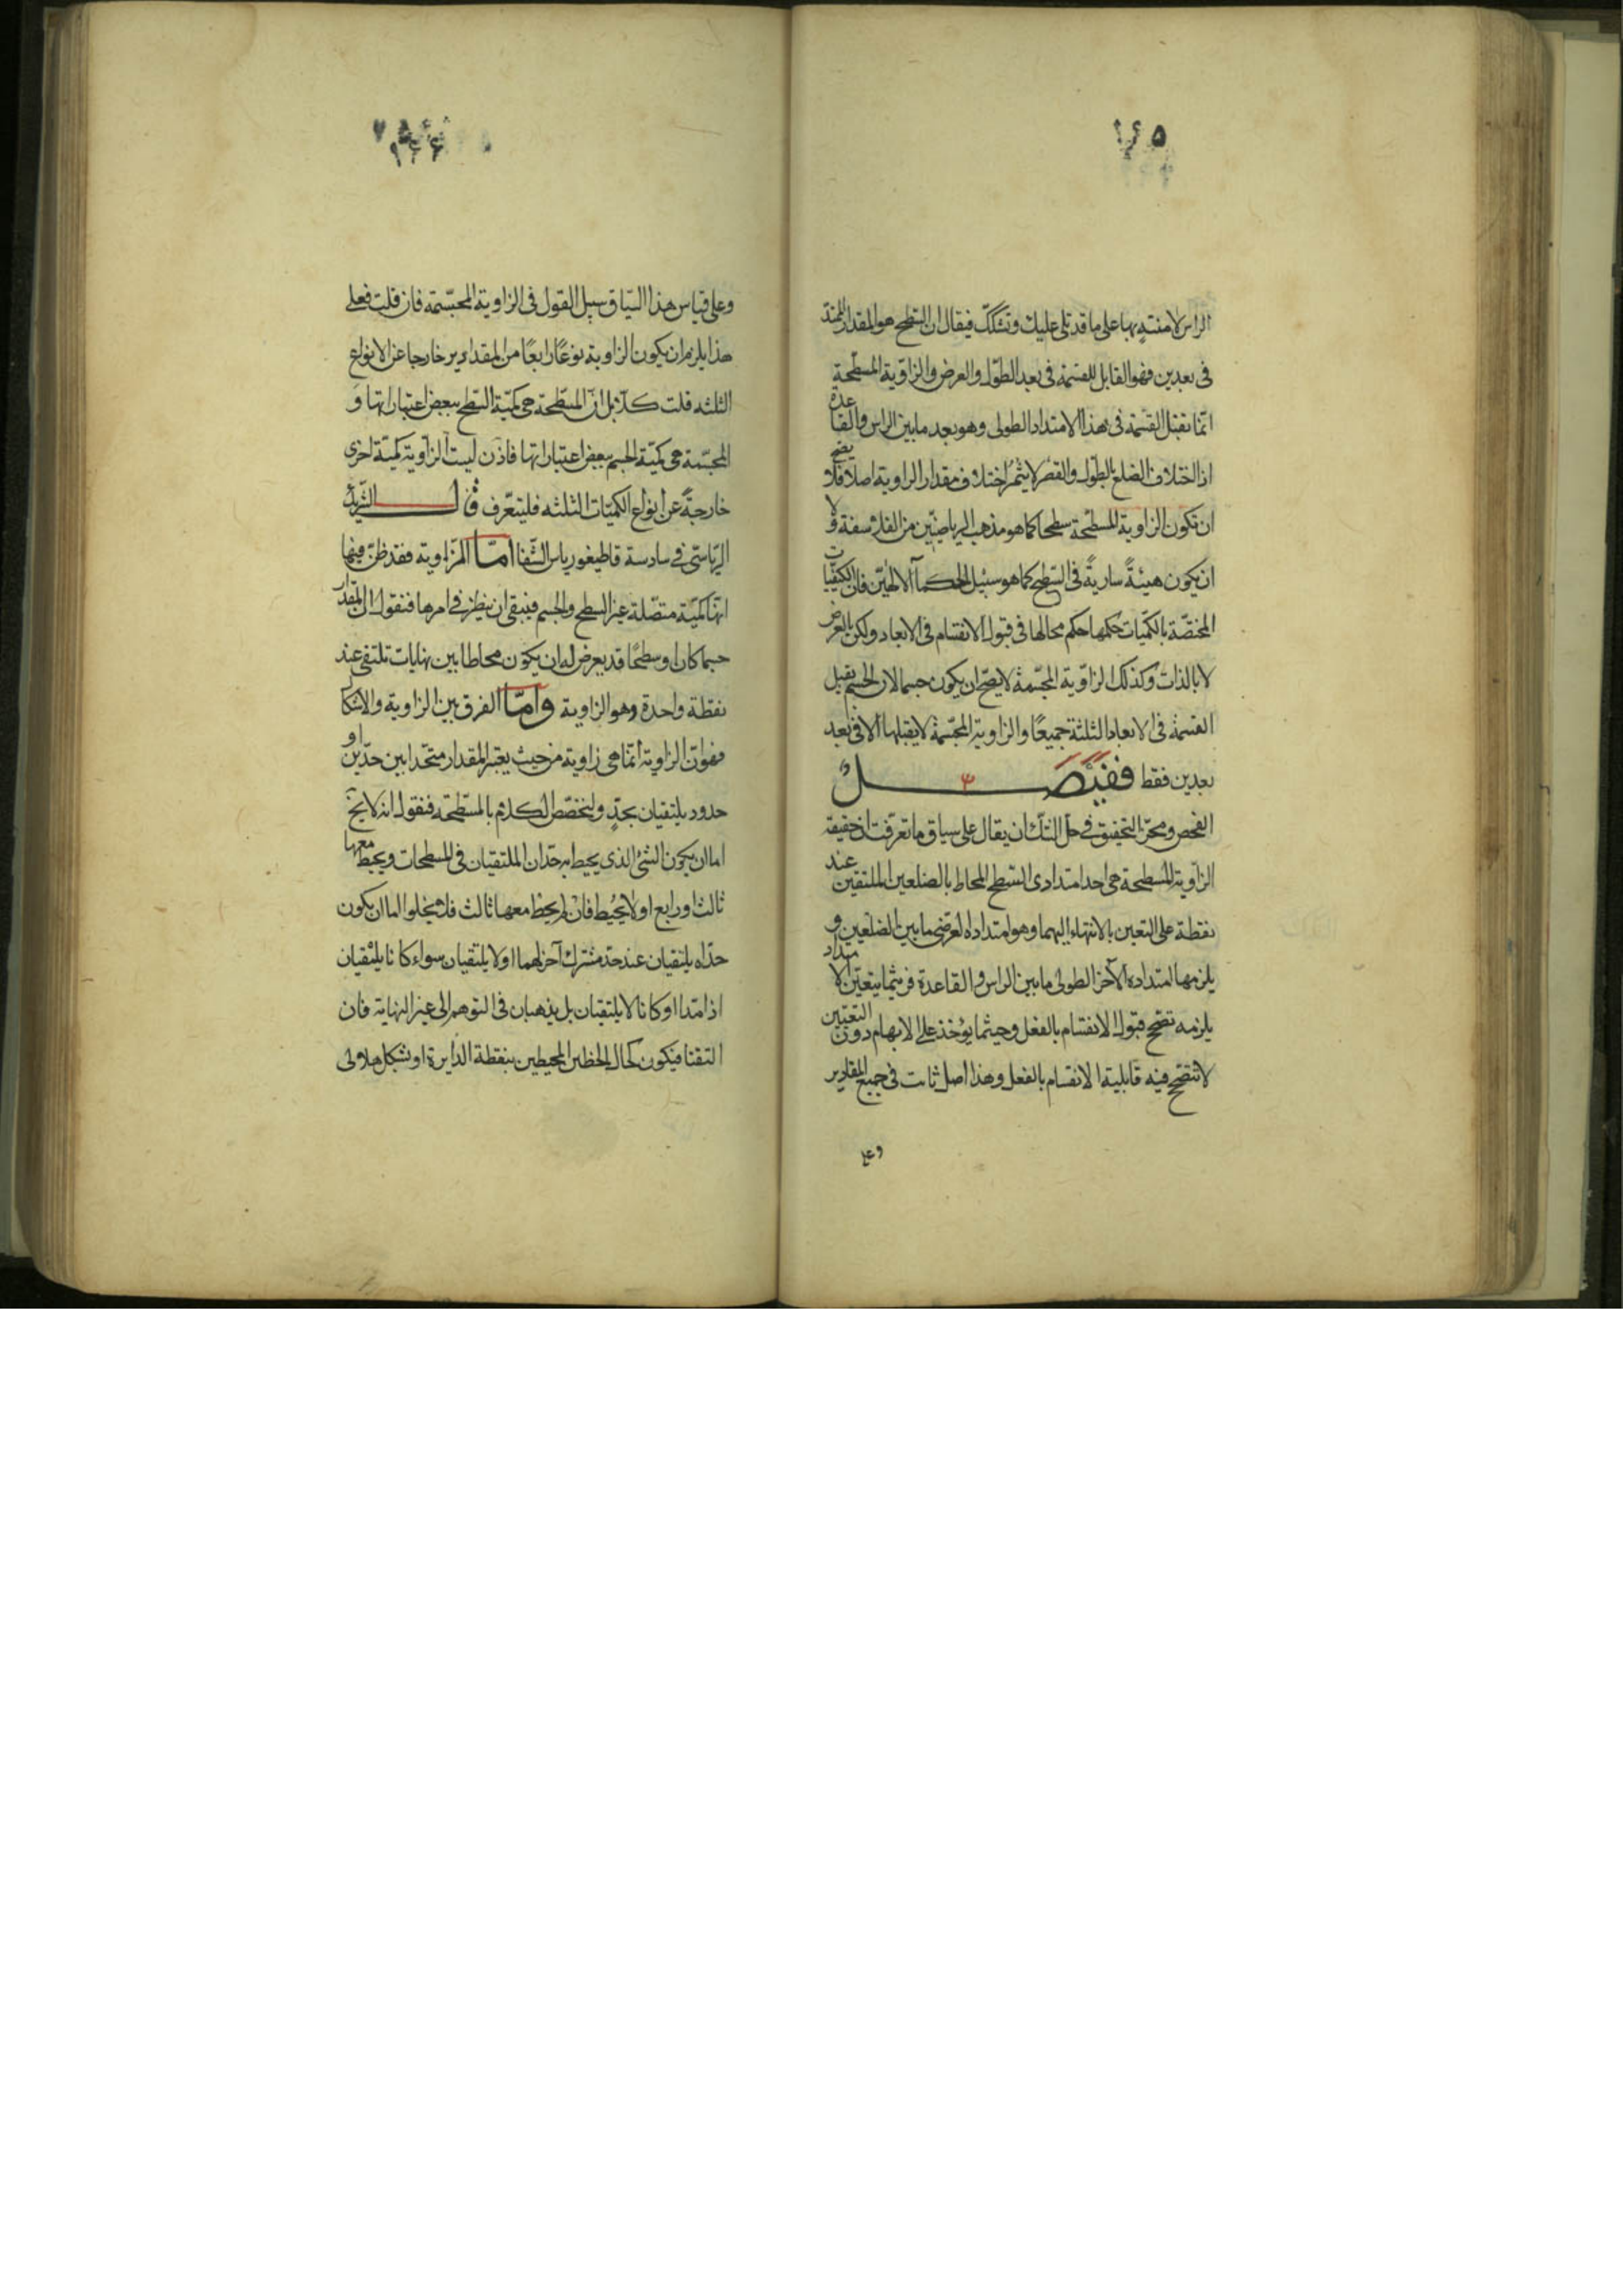 ١٦٥
الراس لا منتهٍ بها على ما قد تلى عليك وتشكك فيقال ان السطح هو المقدار الممتد
فى بعدين فهو القابل للقسمة فى بعد الطول والعرض والزاوية المسطحة
انما تقبل القسمة فى هذا الامتداد الطولى وهو بعد ما بين الراس والقاعدة
اذ اختلاف الضلع بالطول والقصر لا يثمر اختلاف مقدار الزاوية اصلا فلا يصح
ان تكون الزاوية المسطحة سطحا كما هو مذهب الرياضيين من الفلاسفة ولا
ان يكون هيئةً ساريةً فى السطح كما هو سبيل الحكماء الالهيين فان الكيفيات
المختصة بالكميات حكمها حكم محالها فى قبول الانقسام فى الابعاد ولكن بالعرض
لا بالذات وكذلك الزاوية المجسمة لا يصح ان يكون جسما لان الجسم يقبل
القسمة فى الابعاد الثلثة جميعًا والزاوية المجسمة لا يقبلها الا فى بعد
بعدين فقط ففيصل
الفحص ومحز التحقيق فى حل الشك ان يقال على سياق ما تعرفت ان حقيقة
الزاوية المسطحة هى احد امتدادى السطح المحاط بالضلعين الملتقيين عند
نقطة على التعين بالانتهاء اليهما وهو امتداده العرضى ما بين الضلعين و
يلزمها امتداده الآخر الطولى ما بين الراس والقاعدة فريثما يتعين الامتداد
يلزمه تصحح قبول الانقسام بالفعل وحيثما يؤخذ على الابهام دون التعيين
لا تتصحح فيه قابلية الانقسام بالفعل وهذا اصل ثابت فى جميع المقادير
وعلى
١٦٦
وعلى قياس هذا السياق سبيل القول فى الزاوية المجسمة فان قلت فعلى
هذا يلزم ان يكون الزاوية نوعًا رابعًا من المقدار ير خارجا عن الانواع
الثلثه قلت كلا بل ان المسطحة هى كمية السطح ببعض اعتباراتها و
المجسمة هى كمية الجسم ببعض اعتباراتها فاذن ليست الزاوية كمية اخرى
خارجةً عن انواع الكميات الثلثه فليتعرف قال الشريك
الرياستى فى سادسة قاطيغورياس الشفا اما الزاوية فقد ظن فيها
انها كمية متصلة غير السطح والجسم فينبغى ان ينظر فى امرها فنقول ان المقدار
جسما كان او سطحًا قد يعرض له ان يكون محاطا بين نهايات تلتقى عند
نقطة واحدة وهو الزاوية واما الفرق بين الزاوية والاشكال
فهو ان الزاوية انما هى زاوية من حيث يعتبر المقدار متحدا بين حدين او
حدود يلتقيان بحدٍ ولنخصص الكلام بالمسطحة فنقول انه لا يخ
اما ان يكون الشئ الذى يحيط به حدان الملتقيان فى المسطحات ويحيط معها
ثالث او رابع او لا يحيط فان لم يحط معها ثالث فلا يخلو اما ان يكون
حداه يلتقيان عند حد مشترك آخر لهما او لا يلتقيان سواء كانا يلتقيان
اذا امتدا او كانا لا يلتقيان بل يذهبان فى التوهم الى غير النهاية فان
التقتا فيكون كحال الخطين المحيطين بنقطة الدايرة او شكل هلالى